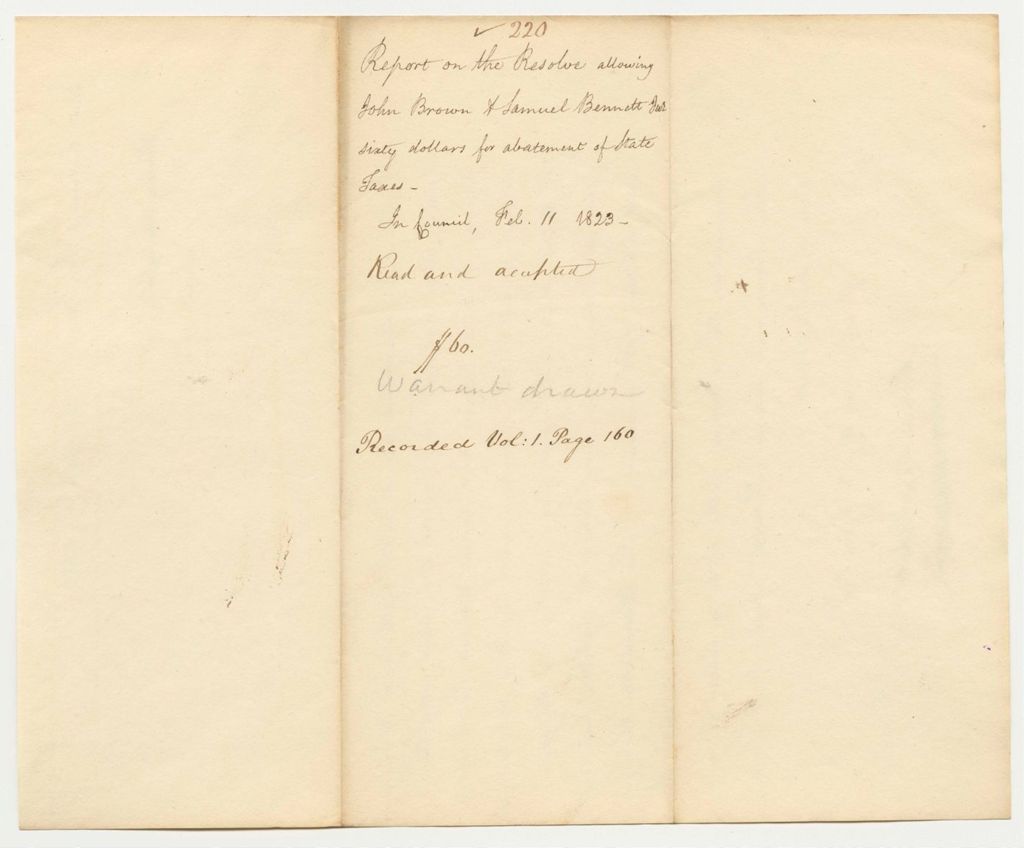 ✓ 220
Report on the Resolve allowing
John Brown & Samuel Bennett Jun.
sixty dollars for abatement of State
Taxes -
In Council, Feb. 11 1823 -
Read and accepted
$60.
Warrant drawn
Recorded Vol: 1. Page 160